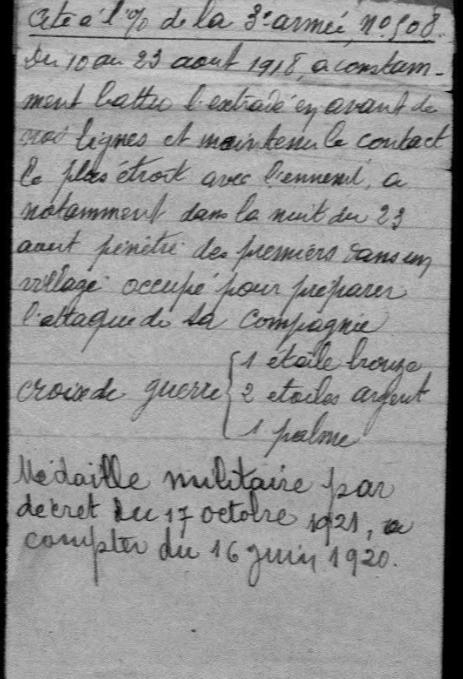 Cité à l'% de la 3e armée, no 508.
Du 10 au 23 aout 1918, a constam-
ment battu l'estrade en avant de
nos lignes et maintenu le contact
le plus étroit avec l'ennemi, a
notamment dans la nuit du 23
aout pénétré des premiers dans un
village occupé pour préparer
l'attaque de sa compagnie
croix de guerre { 1 étoile bronze
2 étoiles argent
1 palme
Médaille militaire par
décret du 17 octobre 1921, a
compter du 16 juin 1920.